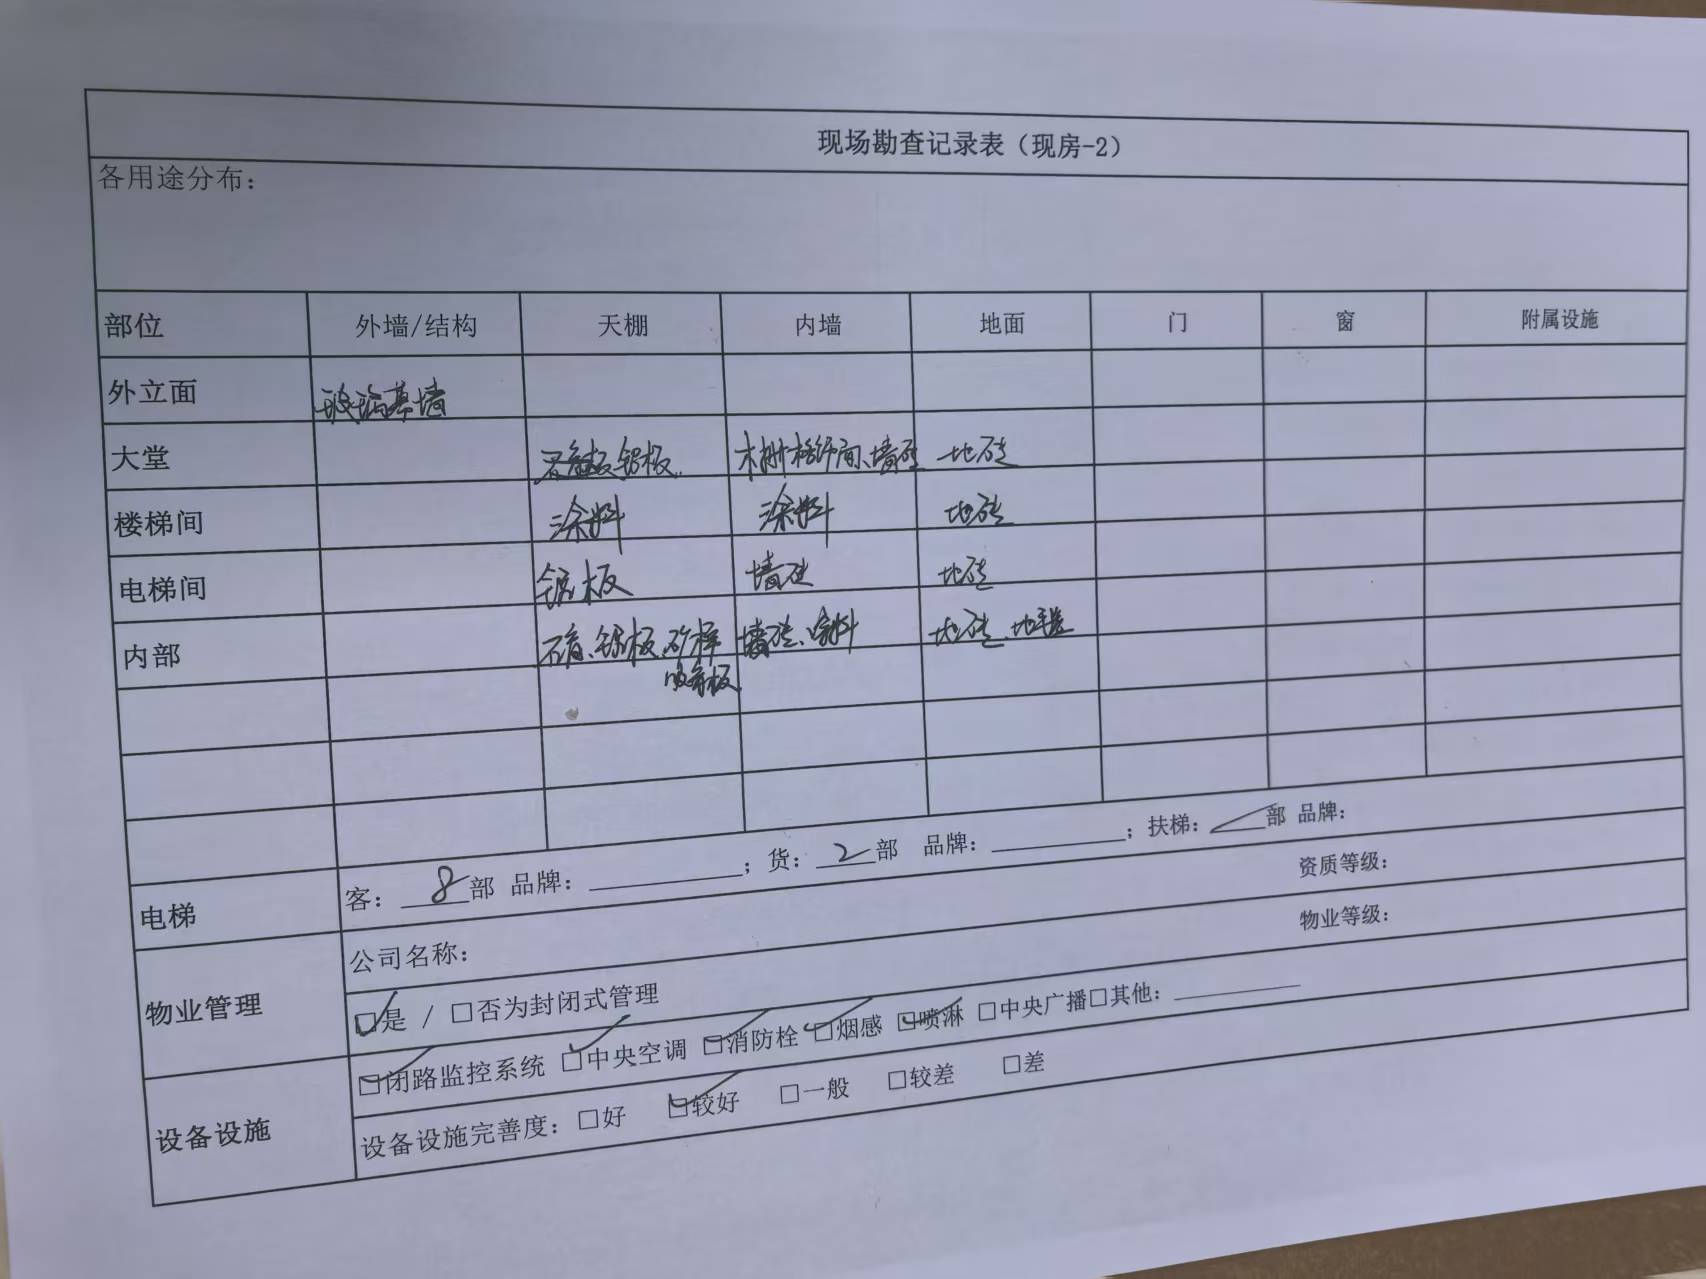 现场勘查记录表（现房-2）
各用途分布：
部位 外墙/结构 天棚 内墙 地面 门 窗 附属设施
外立面 玻璃幕墙
大堂 铝板 木栅格饰面、墙砖 地砖
楼梯间 涂料 涂料 地砖
电梯间 铝板 墙砖 地砖
内部 石膏、铝板、矿棉 墙砖、涂料 地砖、地毯
吸音板
电梯 客：8部 品牌：______；货：2部 品牌：______；扶梯：/部 品牌：
物业管理 公司名称： 资质等级：
☑是 / □否为封闭式管理 物业等级：
设备设施 ☑闭路监控系统 ☑中央空调 ☑消防栓 ☑烟感 ☑喷淋 □中央广播□其他：______
设备设施完善度：□好 ☑较好 □一般 □较差 □差